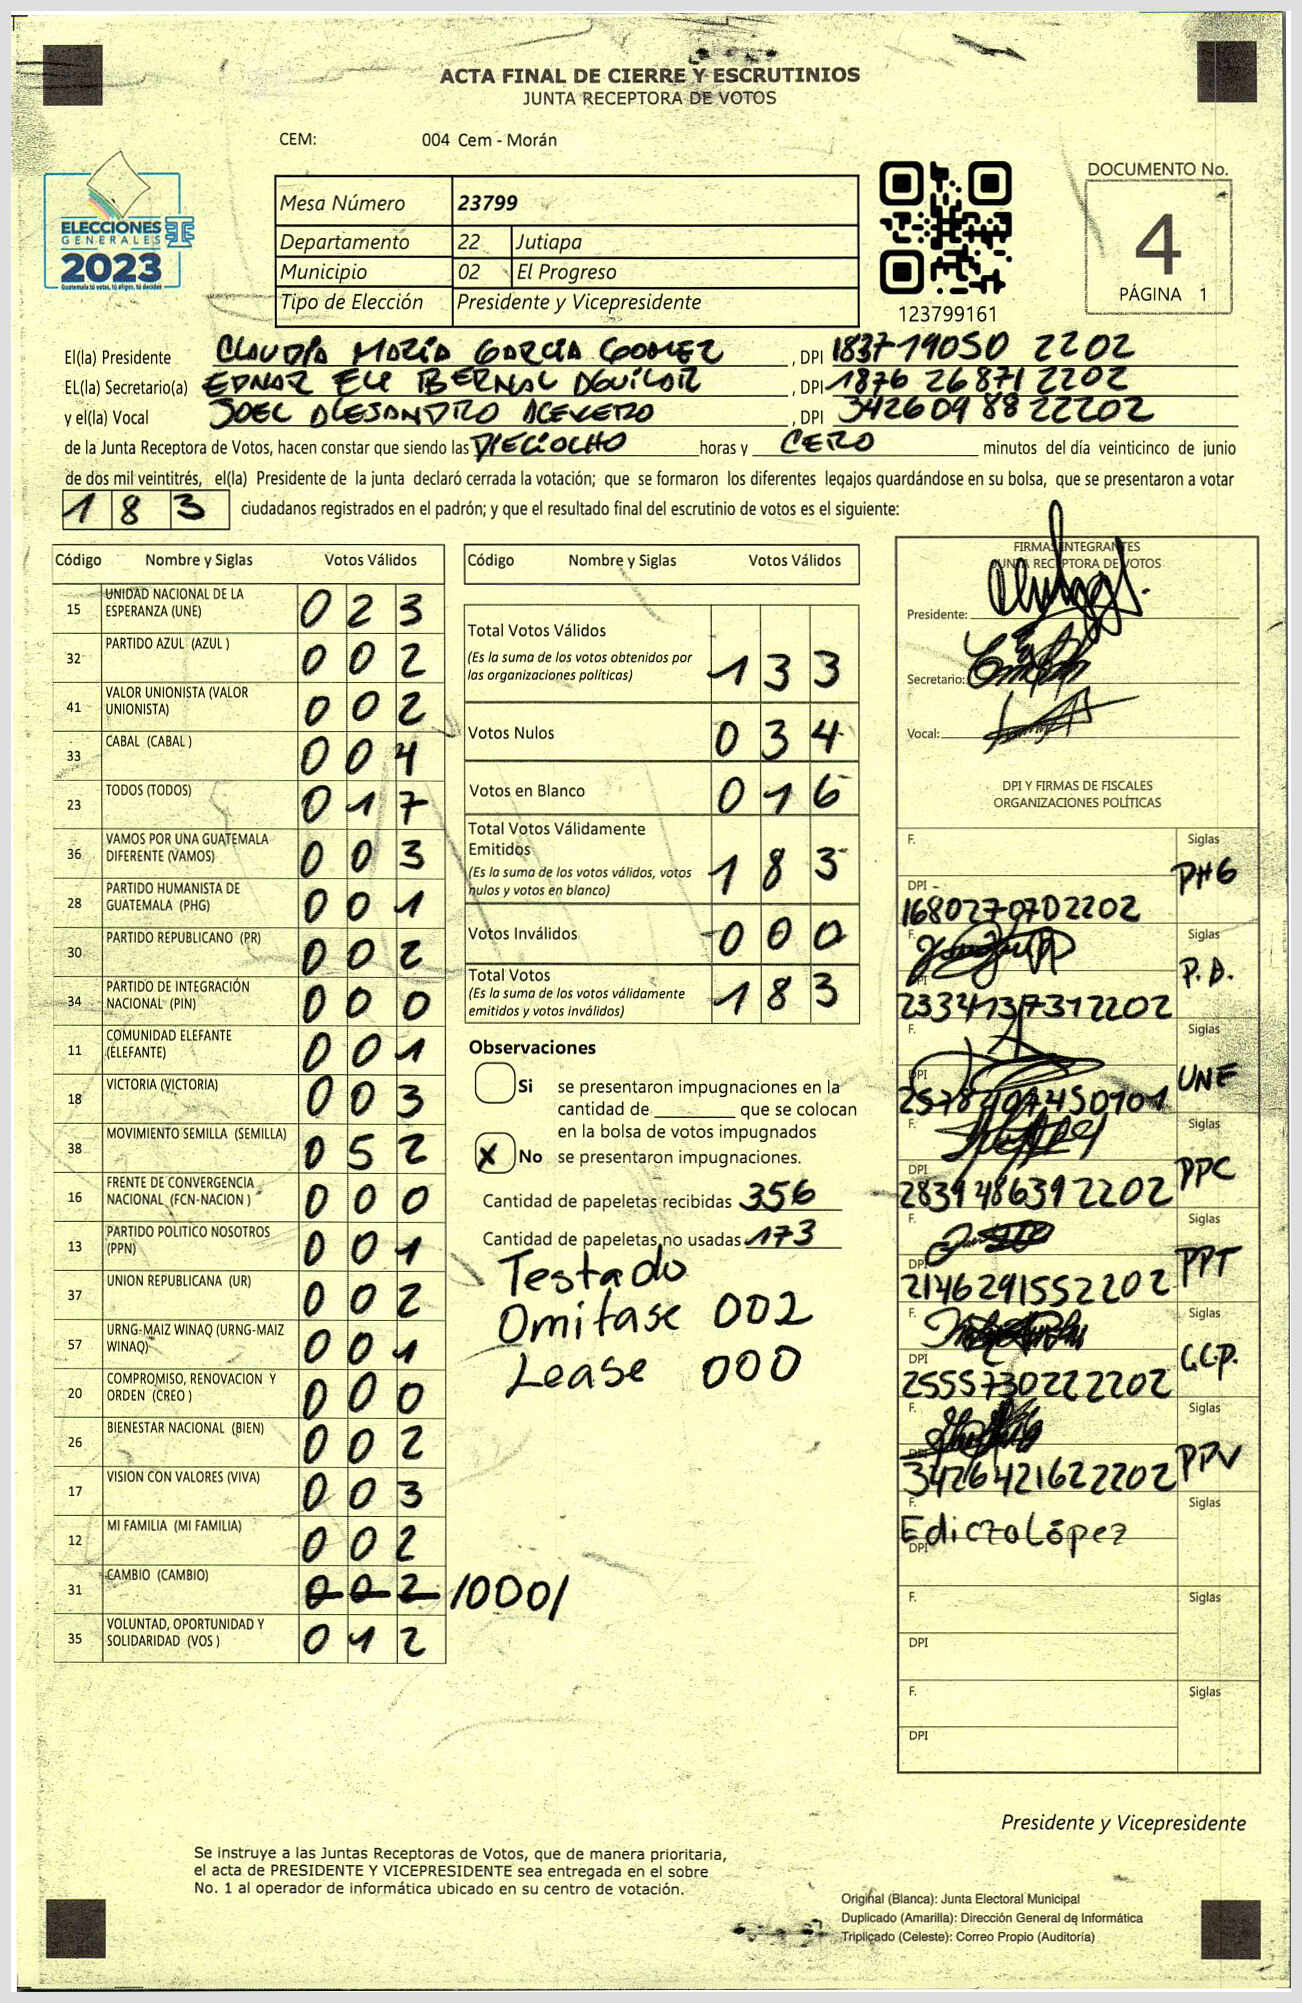 ACTA FINAL DE CIERRE Y ESCRUTINIOS
JUNTA RECEPTORA DE VOTOS
CEM: 004 Cem - Morán
ELECCIONES
GENERALES
2023
Guatemala tú votas, tú eliges, tú decides
Mesa Número 23799
Departamento 22 Jutiapa
Municipio 02 El Progreso
Tipo de Elección Presidente y Vicepresidente
123799161
DOCUMENTO No.
4
PÁGINA 1
El(la) Presidente CLAUDIA MARÍA GARCIA GOMEZ, DPI 1837 19050 2202
EL(la) Secretario(a) EDNAR ELI BERNAL AGUILAR, DPI 1876 26871 2202
y el(la) Vocal JOEL ALEJANDRO ACEVEDO, DPI 3426098822202
de la Junta Receptora de Votos, hacen constar que siendo las DIECIOCHO horas y CERO minutos del día veinticinco de junio
de dos mil veintitrés, el(la) Presidente de la junta declaró cerrada la votación; que se formaron los diferentes legajos quardándose en su bolsa, que se presentaron a votar
183 ciudadanos registrados en el padrón; y que el resultado final del escrutinio de votos es el siguiente:
Código Nombre y Siglas Votos Válidos
15 UNIDAD NACIONAL DE LA ESPERANZA (UNE) 023
32 PARTIDO AZUL (AZUL ) 002
41 VALOR UNIONISTA (VALOR UNIONISTA) 002
33 CABAL (CABAL ) 004
23 TODOS (TODOS) 017
36 VAMOS POR UNA GUATEMALA DIFERENTE (VAMOS) 003
28 PARTIDO HUMANISTA DE GUATEMALA (PHG) 001
30 PARTIDO REPUBLICANO (PR) 002
34 PARTIDO DE INTEGRACIÓN NACIONAL (PIN) 000
11 COMUNIDAD ELEFANTE (ELEFANTE) 001
18 VICTORIA (VICTORIA) 003
38 MOVIMIENTO SEMILLA (SEMILLA) 052
16 FRENTE DE CONVERGENCIA NACIONAL (FCN-NACION ) 000
13 PARTIDO POLITICO NOSOTROS (PPN) 001
37 UNION REPUBLICANA (UR) 002
57 URNG-MAIZ WINAQ (URNG-MAIZ WINAQ) 001
20 COMPROMISO, RENOVACION Y ORDEN (CREO ) 000
26 BIENESTAR NACIONAL (BIEN) 002
17 VISION CON VALORES (VIVA) 003
12 MI FAMILIA (MI FAMILIA) 002
31 CAMBIO (CAMBIO) 002 /000/
35 VOLUNTAD, OPORTUNIDAD Y SOLIDARIDAD (VOS ) 012
Código Nombre y Siglas Votos Válidos
Total Votos Válidos 133
(Es la suma de los votos obtenidos por
las organizaciones políticas)
Votos Nulos 034
Votos en Blanco 016
Total Votos Válidamente
Emitidos 183
(Es la suma de los votos válidos, votos
nulos y votos en blanco)
Votos Inválidos 000
Total Votos 183
(Es la suma de los votos válidamente
emitidos y votos inválidos)
Observaciones
Si se presentaron impugnaciones en la
cantidad de ________ que se colocan
en la bolsa de votos impugnados
X No se presentaron impugnaciones.
Cantidad de papeletas recibidas 356
Cantidad de papeletas no usadas 173
Testado
Omitase 002
Lease 000
FIRMAS INTEGRANTES
JUNTA RECEPTORA DE VOTOS
Presidente:
Secretario:
Vocal:
DPI Y FIRMAS DE FISCALES
ORGANIZACIONES POLÍTICAS
F. Siglas
PHG
DPI
1680270702202
F. Siglas
P.A.
2334137312202
F. Siglas
UNE
DPI
F. Siglas
PPC
DPI
2839486392202
F. Siglas
PPT
DPI
2146291552202
F. Siglas
DPI
2555730222202
F. Siglas
PPV
DPI
3426421622202
F. Siglas
López
DPI
F. Siglas
DPI
F. Siglas
DPI
Presidente y Vicepresidente
Se instruye a las Juntas Receptoras de Votos, que de manera prioritaria,
el acta de PRESIDENTE Y VICEPRESIDENTE sea entregada en el sobre
No. 1 al operador de informática ubicado en su centro de votación.
Original (Blanca): Junta Electoral Municipal
Duplicado (Amarilla): Dirección General de Informática
Triplicado (Celeste): Correo Propio (Auditoría)